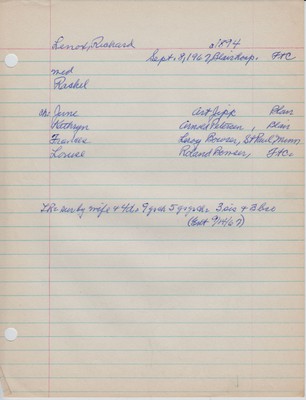 Lenox, Richard b1894
Sept. 8, 1967, Blair Hosp. FtC
med
Rachel
ch. June Art Jipp Blair
Kathryn Arnold Petersen, Blair
Frances Leroy Bowen, St Paul Minn
Louise Roland Bonsen, FtC.
The sur by wife & 4 da 9 grch 5 grgrchr 3 sis & 3 bro
(Ent 9/14/67)